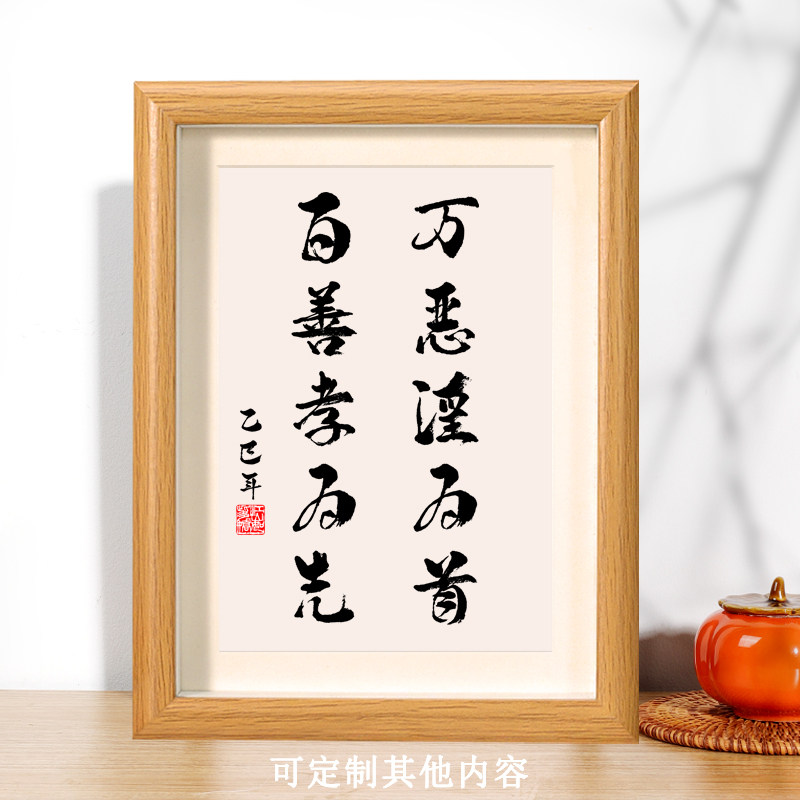 万恶淫为首
百善孝为先
乙巳年
可定制其他内容